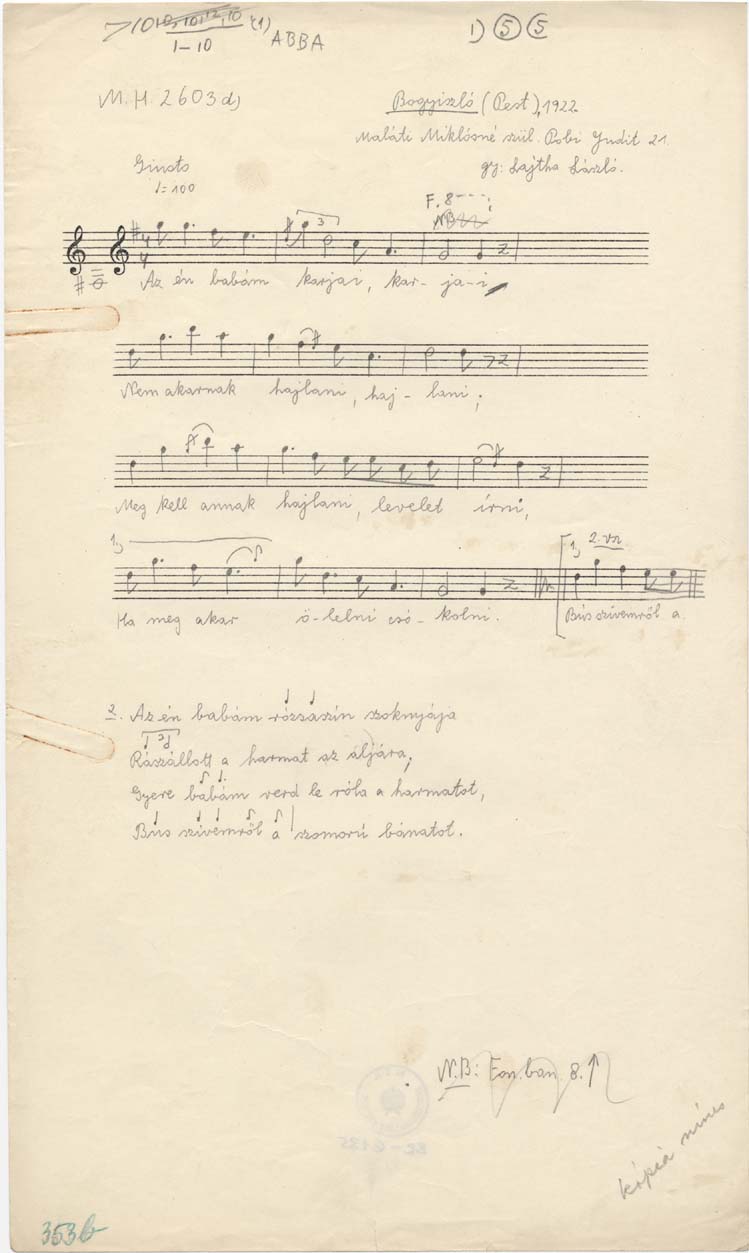 1-10 ABBA 1) 5 5
M.H. 2603 d) Bogyiszló (Pest), 1922
Maláti Miklósné szül. Pobi Judit 21.
Giusto gy: Lajtha László.
♩=100
F. 8
NB
3
Az én babám karjai, kar-ja-i
Nem akarnak hajlani, haj-lani;
Meg kell annak hajlani, levelet írni,
1) 1) 2. vsz
Ha meg akar ö-lelni csó-kolni. Bús szivemről a
2. Az én babám rózsaszín szoknyája
Rászállott a harmat az aljára;
Gyere babám verd le róla a harmatot,
Bús szivemről a szomorú bánatot.
N.B: Fon.ban 8.↑
kópia nincs
353b